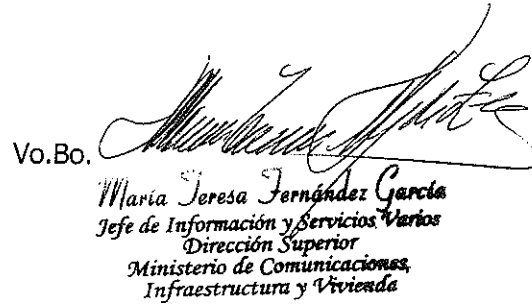 Vo.Bo.
María Teresa Fernández García
Jefe de Información y Servicios Varios
Dirección Superior
Ministerio de Comunicaciones,
Infraestructura y Vivienda